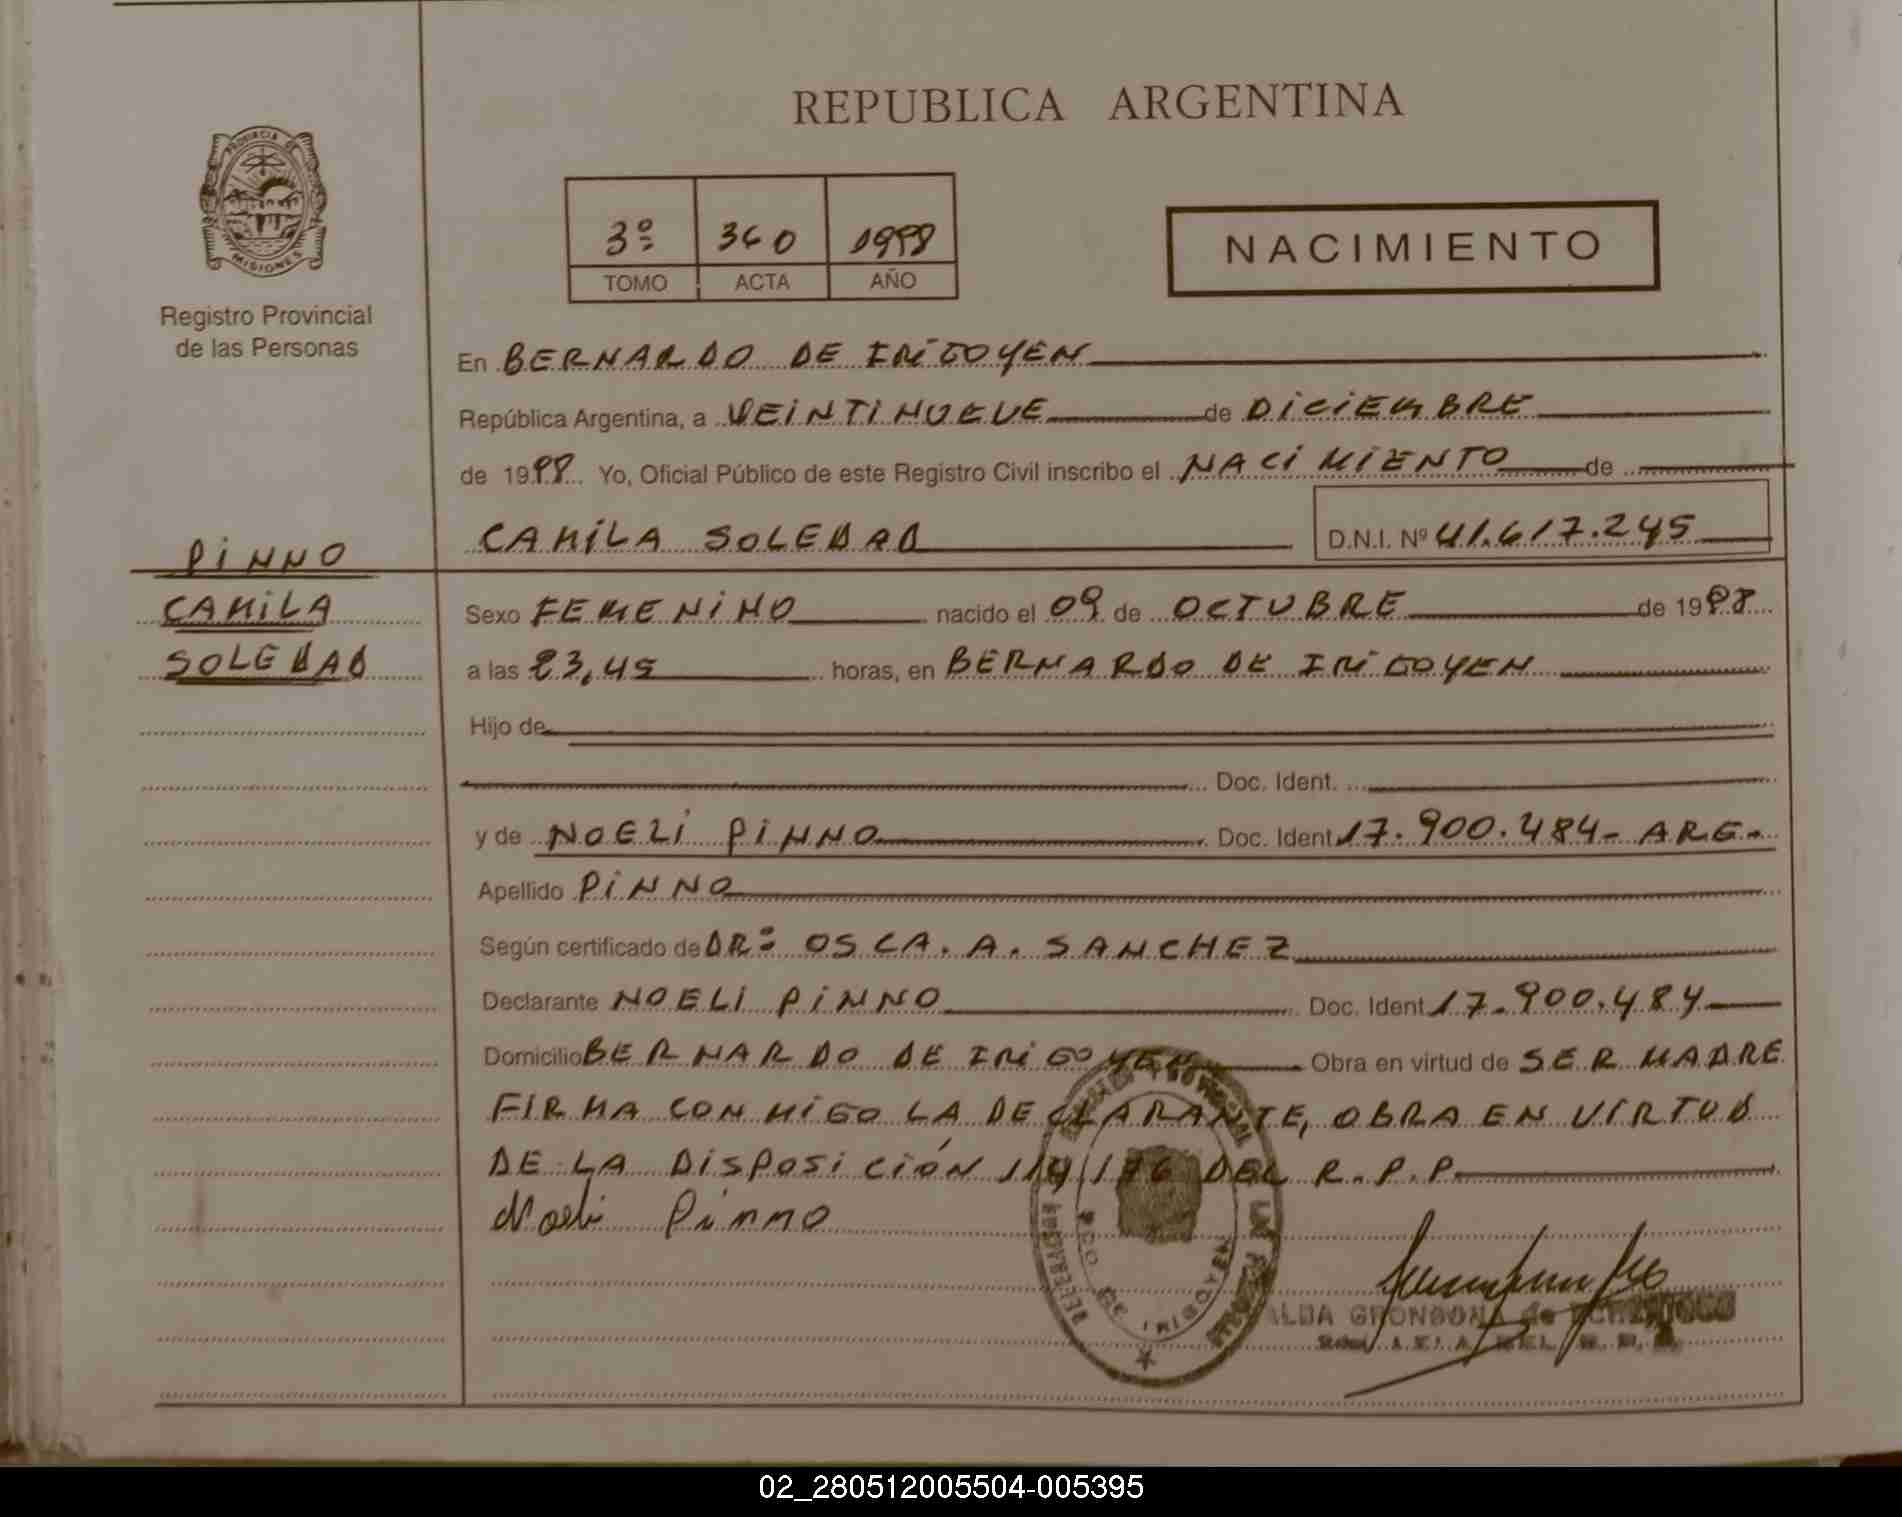 REPUBLICA ARGENTINA
PROVINCIA DE
MISIONES
Registro Provincial
de las Personas
3º 360 1998
TOMO ACTA AÑO
NACIMIENTO
En BERNARDO DE IRIGOYEN
República Argentina, a VEINTINUEVE de DICIEMBRE
de 1998 Yo, Oficial Público de este Registro Civil inscribo el NACIMIENTO de
CAMILA SOLEDAD D.N.I. Nº 41.617.245
PINNO
CAMILA
SOLEDAD
Sexo FEMENINO nacido el 09 de OCTUBRE de 1998
a las 23,45 horas, en BERNARDO DE IRIGOYEN
Hijo de
Doc. Ident.
y de NOELI PINNO Doc. Ident 17.900.484- ARG.-
Apellido PINNO
Según certificado de DR: OSCA. A. SANCHEZ
Declarante NOELI PINNO Doc. Ident 17.900.484
Domicilio BERNARDO DE IRIGOYEN Obra en virtud de SER MADRE
FIRMA CONMIGO LA DECLARANTE, OBRA EN VIRTUD
DE LA DISPOSICIÓN 119/76 DEL R.P.P.
Noeli Pinno
ALBA GRONDONA de
02_280512005504-005395